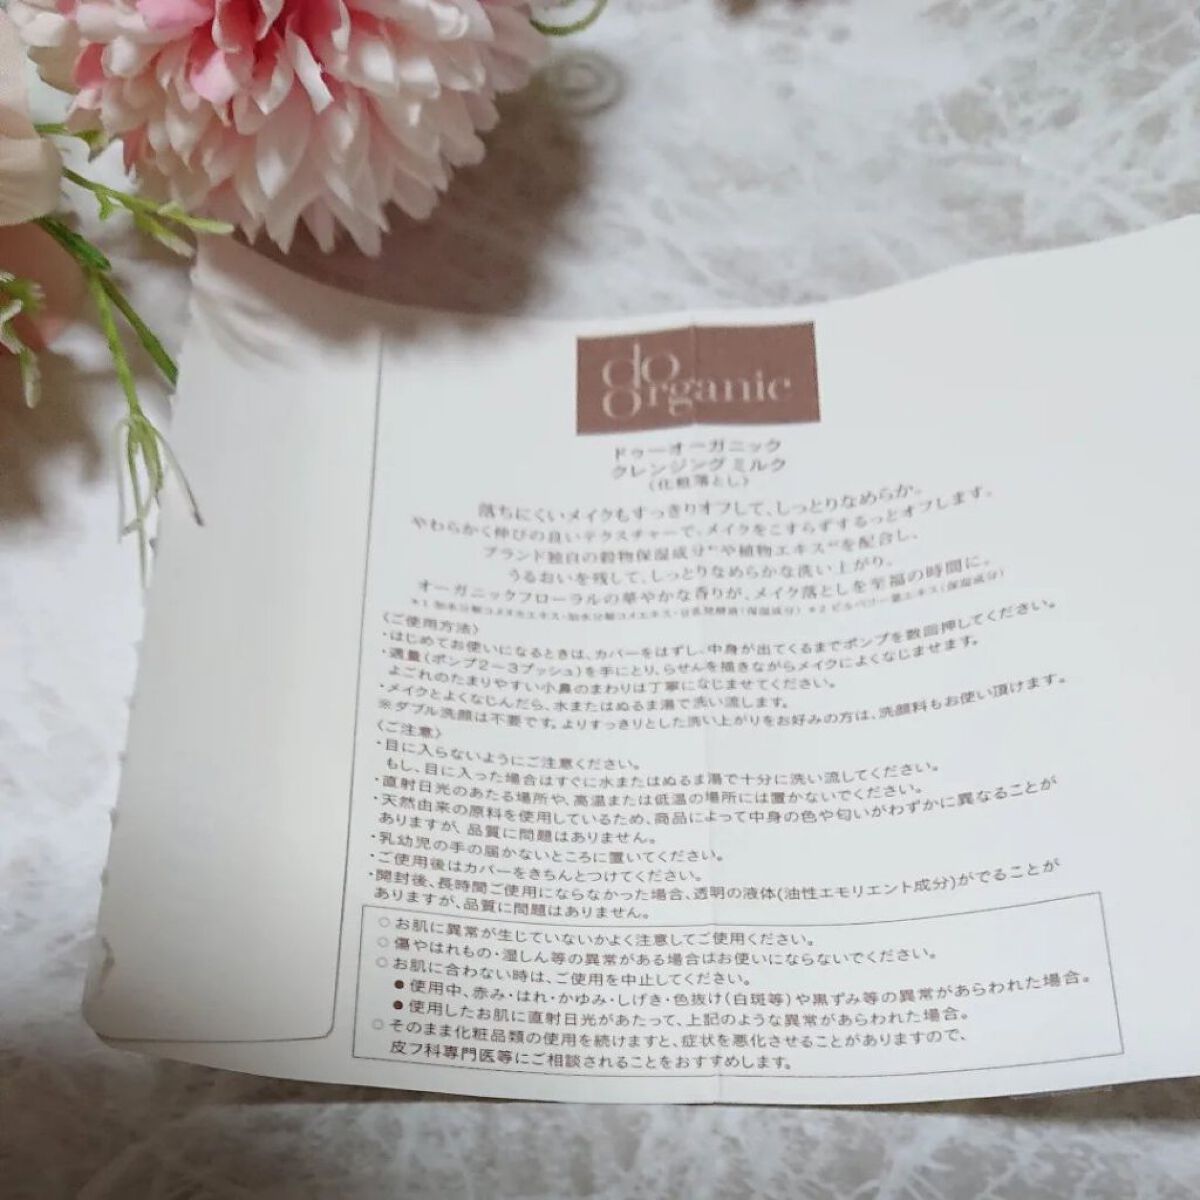 do organic
ドゥーオーガニック
クレンジング ミルク
(化粧落とし)
落ちにくいメイクもすっきりオフして、しっとりなめらか。
やわらかく伸びの良いテクスチャーで、メイクをこすらずするっとオフします。
ブランド独自の穀物保湿成分*1や植物エキス*2を配合し、
うるおいを残して、しっとりなめらかな洗い上がり。
オーガニックフローラルの華やかな香りが、メイク落としを至福の時間に。
*1 加水分解コメヌカエキス・加水分解コメエキス・豆乳発酵液(保湿成分) *2 ビルベリー葉エキス(保湿成分)
〈ご使用方法〉
・はじめてお使いになるときは、カバーをはずし、中身が出てくるまでポンプを数回押してください。
・適量(ポンプ2〜3プッシュ)を手にとり、らせんを描きながらメイクによくなじませます。
よごれのたまりやすい小鼻のまわりは丁寧になじませてください。
・メイクとよくなじんだら、水またはぬるま湯で洗い流します。
※ダブル洗顔は不要です。よりすっきりとした洗い上がりをお好みの方は、洗顔料もお使い頂けます。
〈ご注意〉
・目に入らないようにご注意ください。
もし、目に入った場合はすぐに水またはぬるま湯で十分に洗い流してください。
・直射日光のあたる場所や、高温または低温の場所には置かないでください。
・天然由来の原料を使用しているため、商品によって中身の色や匂いがわずかに異なることが
ありますが、品質に問題はありません。
・乳幼児の手の届かないところに置いてください。
・ご使用後はカバーをきちんとつけてください。
・開封後、長時間ご使用にならなかった場合、透明の液体(油性エモリエント成分)がでることが
ありますが、品質に問題はありません。
○お肌に異常が生じていないかよく注意してご使用ください。
○傷やはれもの・湿しん等の異常がある場合はお使いにならないでください。
○お肌に合わない時は、ご使用を中止してください。
●使用中、赤み・はれ・かゆみ・しげき・色抜け(白斑等)や黒ずみ等の異常があらわれた場合。
●使用したお肌に直射日光があたって、上記のような異常があらわれた場合。
○そのまま化粧品類の使用を続けますと、症状を悪化させることがありますので、
皮フ科専門医等にご相談されることをおすすめします。